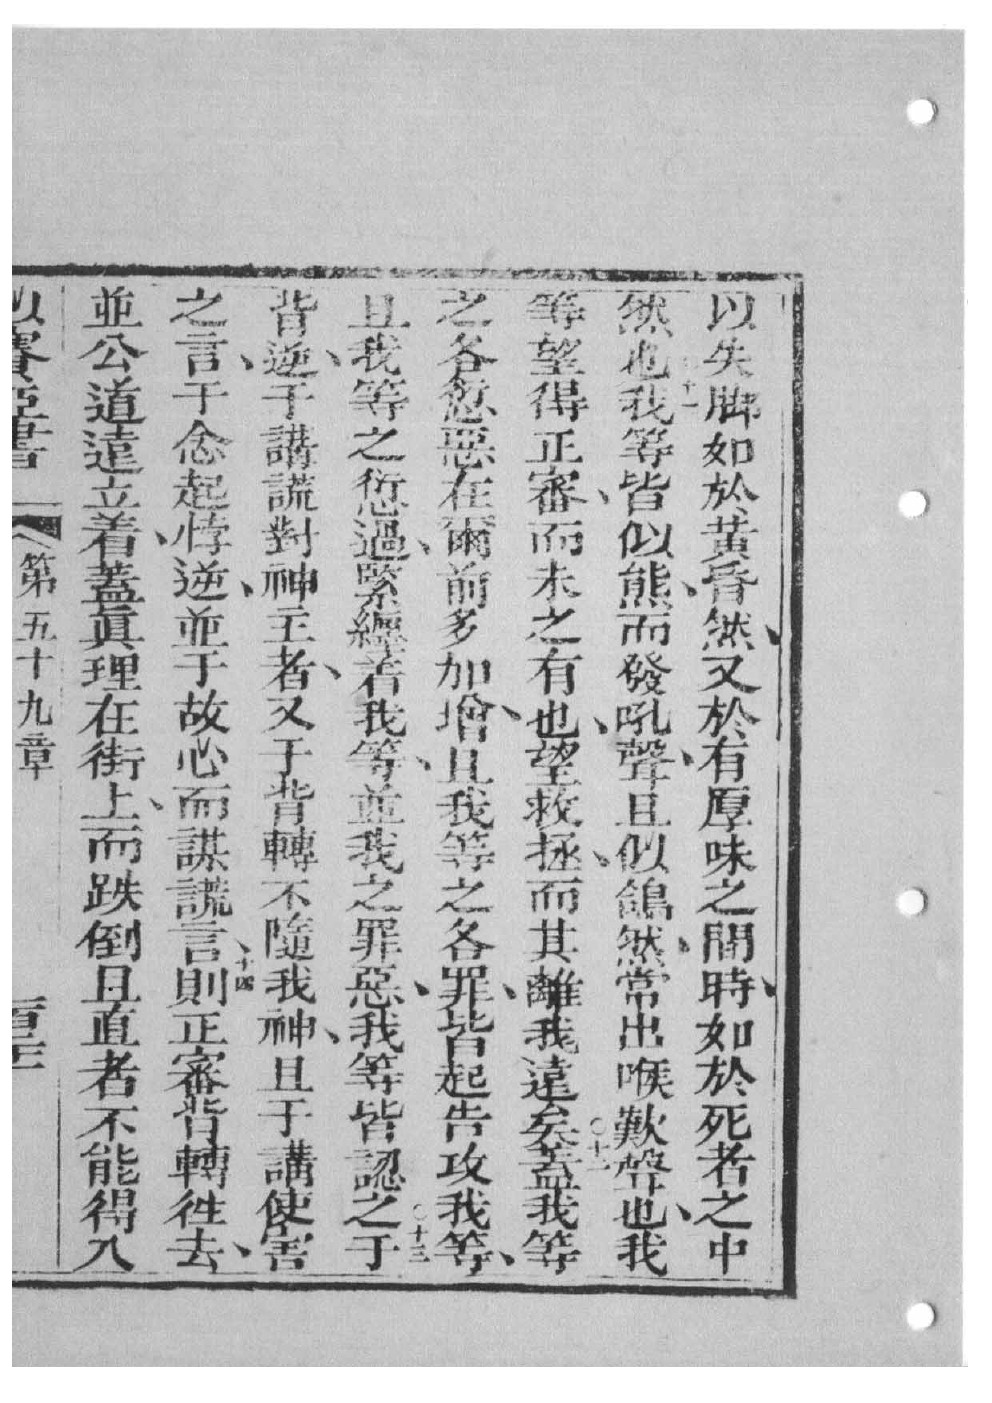 以失脚如於黄昏然、又於有厚味之間時、如於死者之中
然也○十一我等皆似熊、而發吼聲、且似鴿然、常出喉歎聲也、我
等望得正審、而未之有也、望救拯、而其離我遠矣○十二蓋我等
之各愆惡在爾前多加增、且我等之各罪、皆起告攻我等、
且我等之愆過、緊纏着我等、並我之罪惡、我等皆認之○十三于
背逆、于講謊對神主者、又于背轉不隨我神、且于講使害
之言、于念起悖逆、並于故心而謀謊言、十四則正審背轉徃去、
並公道遠立着、蓋眞理在街上、而跌倒、且直者不能得入
以賽亞書 第五十九章